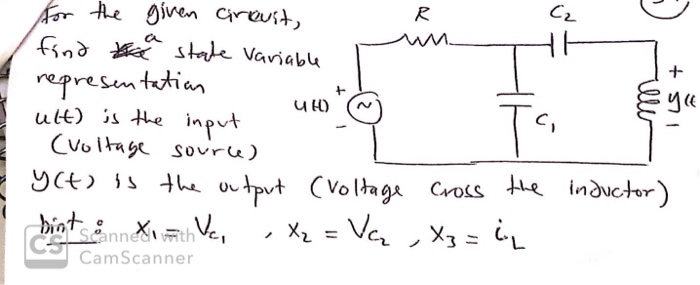 for the given circuit,
R
C2
find a state variable
representation
u(t)
+
-
C1
+
y(t
-
u(t) is the input
(voltage source)
y(t) is the output (voltage cross the inductor)
hint: x1 = Vc1 , x2 = Vc2 , x3 = iL
CS Scanned with
CamScanner